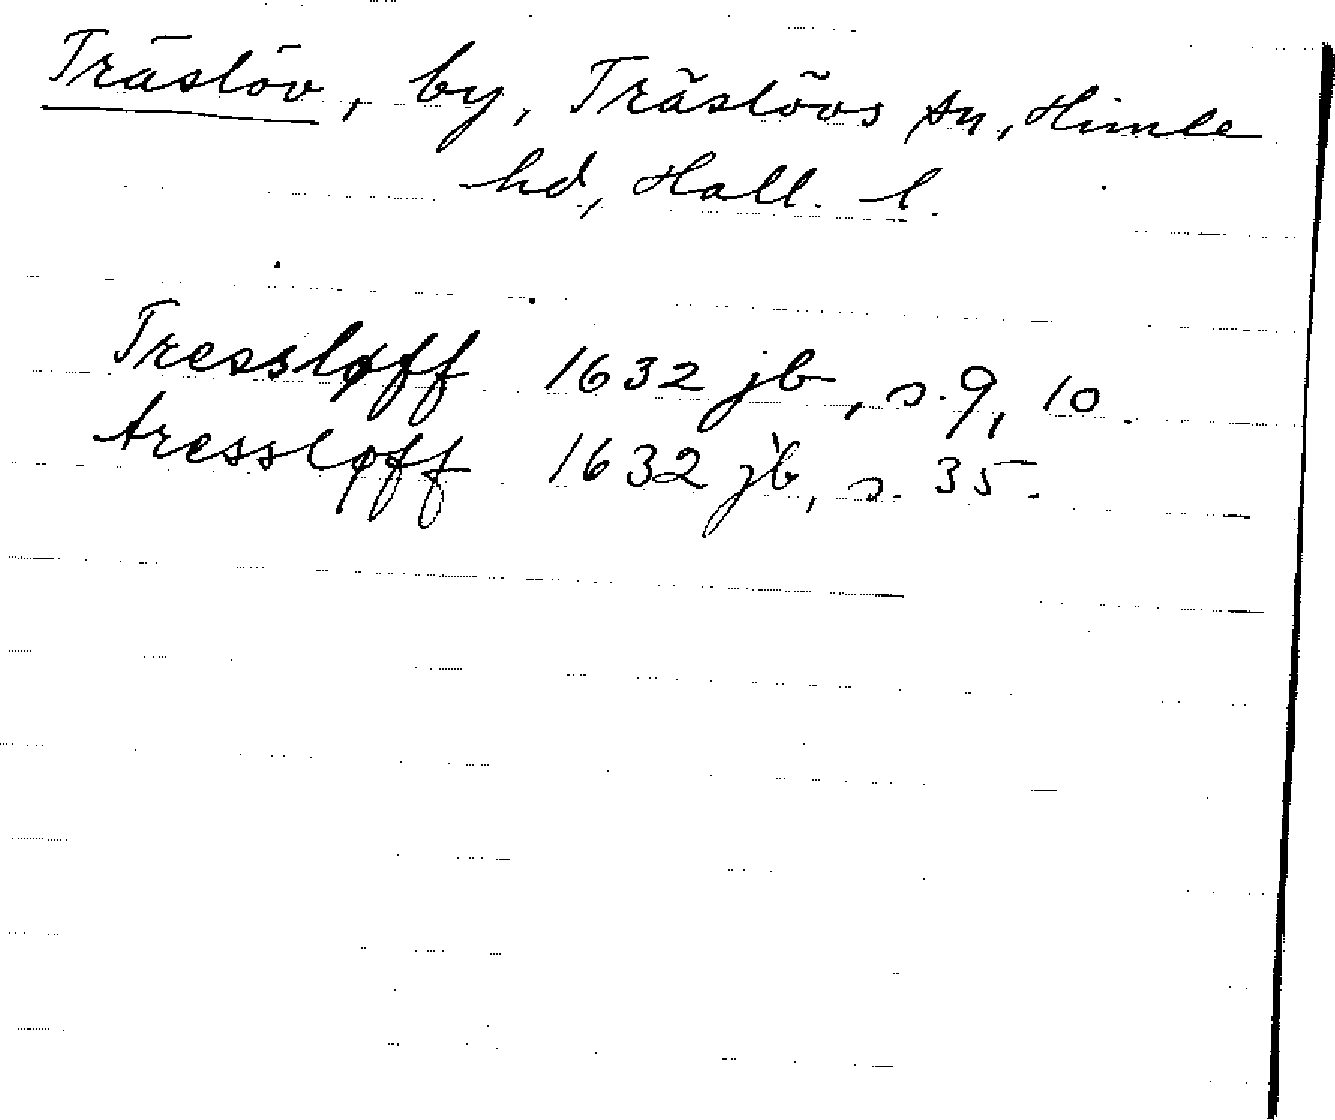 Träslöv, by, Träslövs sn, Himle
hd, Hall. l.
Tressløff 1632 jb, s. 9, 10
tressløff 1632 jb, s. 35.